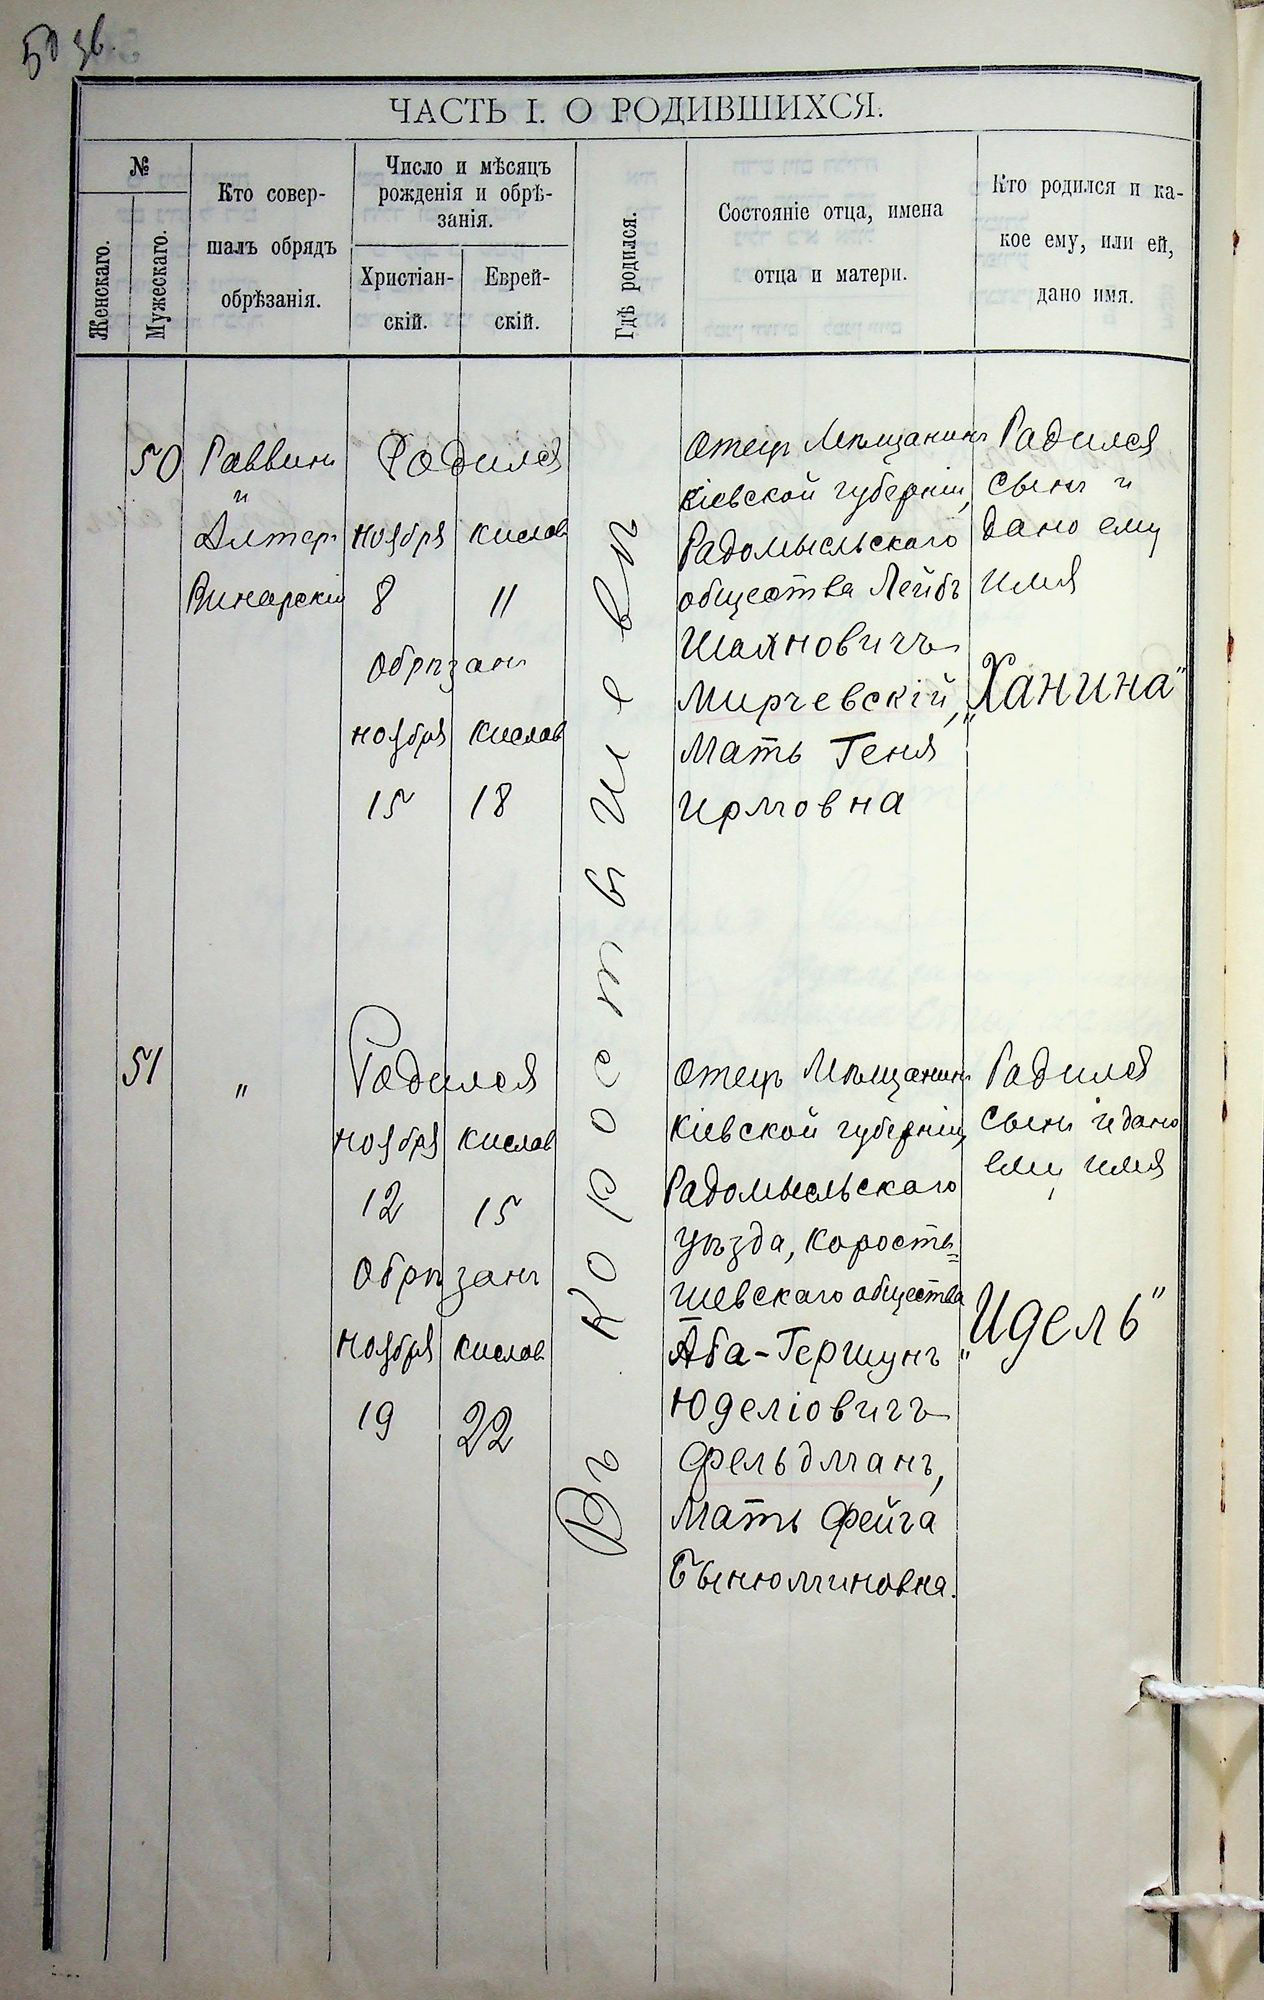 50 зв.
ЧАСТЬ I. О РОДИВШИХСЯ.
№
Женскаго.
Мужескаго.
Кто совер-
шалъ обрядъ
обрѣзанія.
Число и мѣсяцъ
рожденія и обрѣ-
занія.
Христіан-
скій.
Еврей-
скій.
Гдѣ родился.
Состояніе отца, имена
отца и матери.
Кто родился и ка-
кое ему, или ей,
дано имя.
50
Раввинъ
и
Алтеръ
Винарскій
Родился
ноября кислев
8 11
Обрѣзанъ
ноября кислев
15 18
Въ Коростышевѣ
Отецъ Мѣщанинъ
Кіевской губерніи,
Радомысльскаго
общества Лейбъ
Шаяновичъ
Мирчевскій,
Мать Геня
Ирмовна
Радился
сынъ и
дано ему
имя
„Ханина"
51
"
Родился
ноября кислев
12 15
Обрѣзанъ
ноября кислев
19 22
Отецъ Мѣщанинъ
Кіевской губерніи,
Радомысльскаго
уѣзда, Коросты=
шевскаго общества
Аба-Гершунъ
Юделіовичъ
Фельдманъ,
Мать Фейга
Бынюминовна.
Радился
сынъ и дано
ему имя
„Идель"